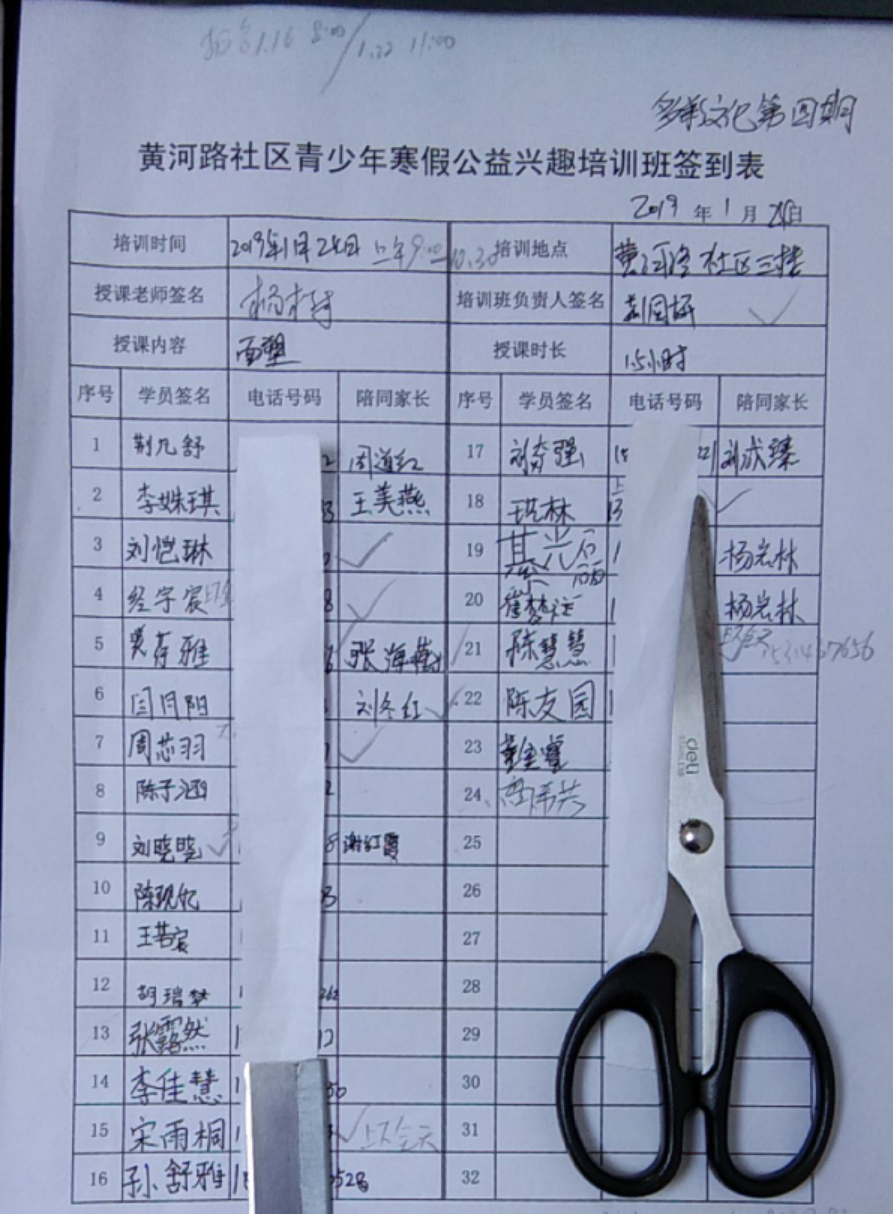 1.16 8:00/1.22 11:00
多彩文化第四期
黄河路社区青少年寒假公益兴趣培训班签到表
2019 年 1 月 24日
培训时间 2019年1月24日 上午9:00 10:30 培训地点 黄河路社区三楼
授课老师签名 培训班负责人签名
授课内容 面塑 授课时长 1.5小时
序号 学员签名 电话号码 陪同家长 序号 学员签名 电话号码 陪同家长
1 荆几舒 2 周道红 17 刘奇强 刘成臻
2 李姝琪 3 王美燕 18 林
3 刘恺琳 19 綦光 后面 杨岩林
4 经宇宸 8 20 杨岩林
5 雅 张海 21 陈慧慧
6 闫月阳 刘冬红 22 陈友园
7 周芯羽 23
8 陈子涵 2 24
9 刘晓晓 8 谢红霞 25
10 陈现忆 3 26
11 王若宸 27
12 胡瑞梦 28
13 张露然 12 29
14 李佳慧 1 50 30
15 宋雨桐 1 31
16 孙舒雅 528 32
deli